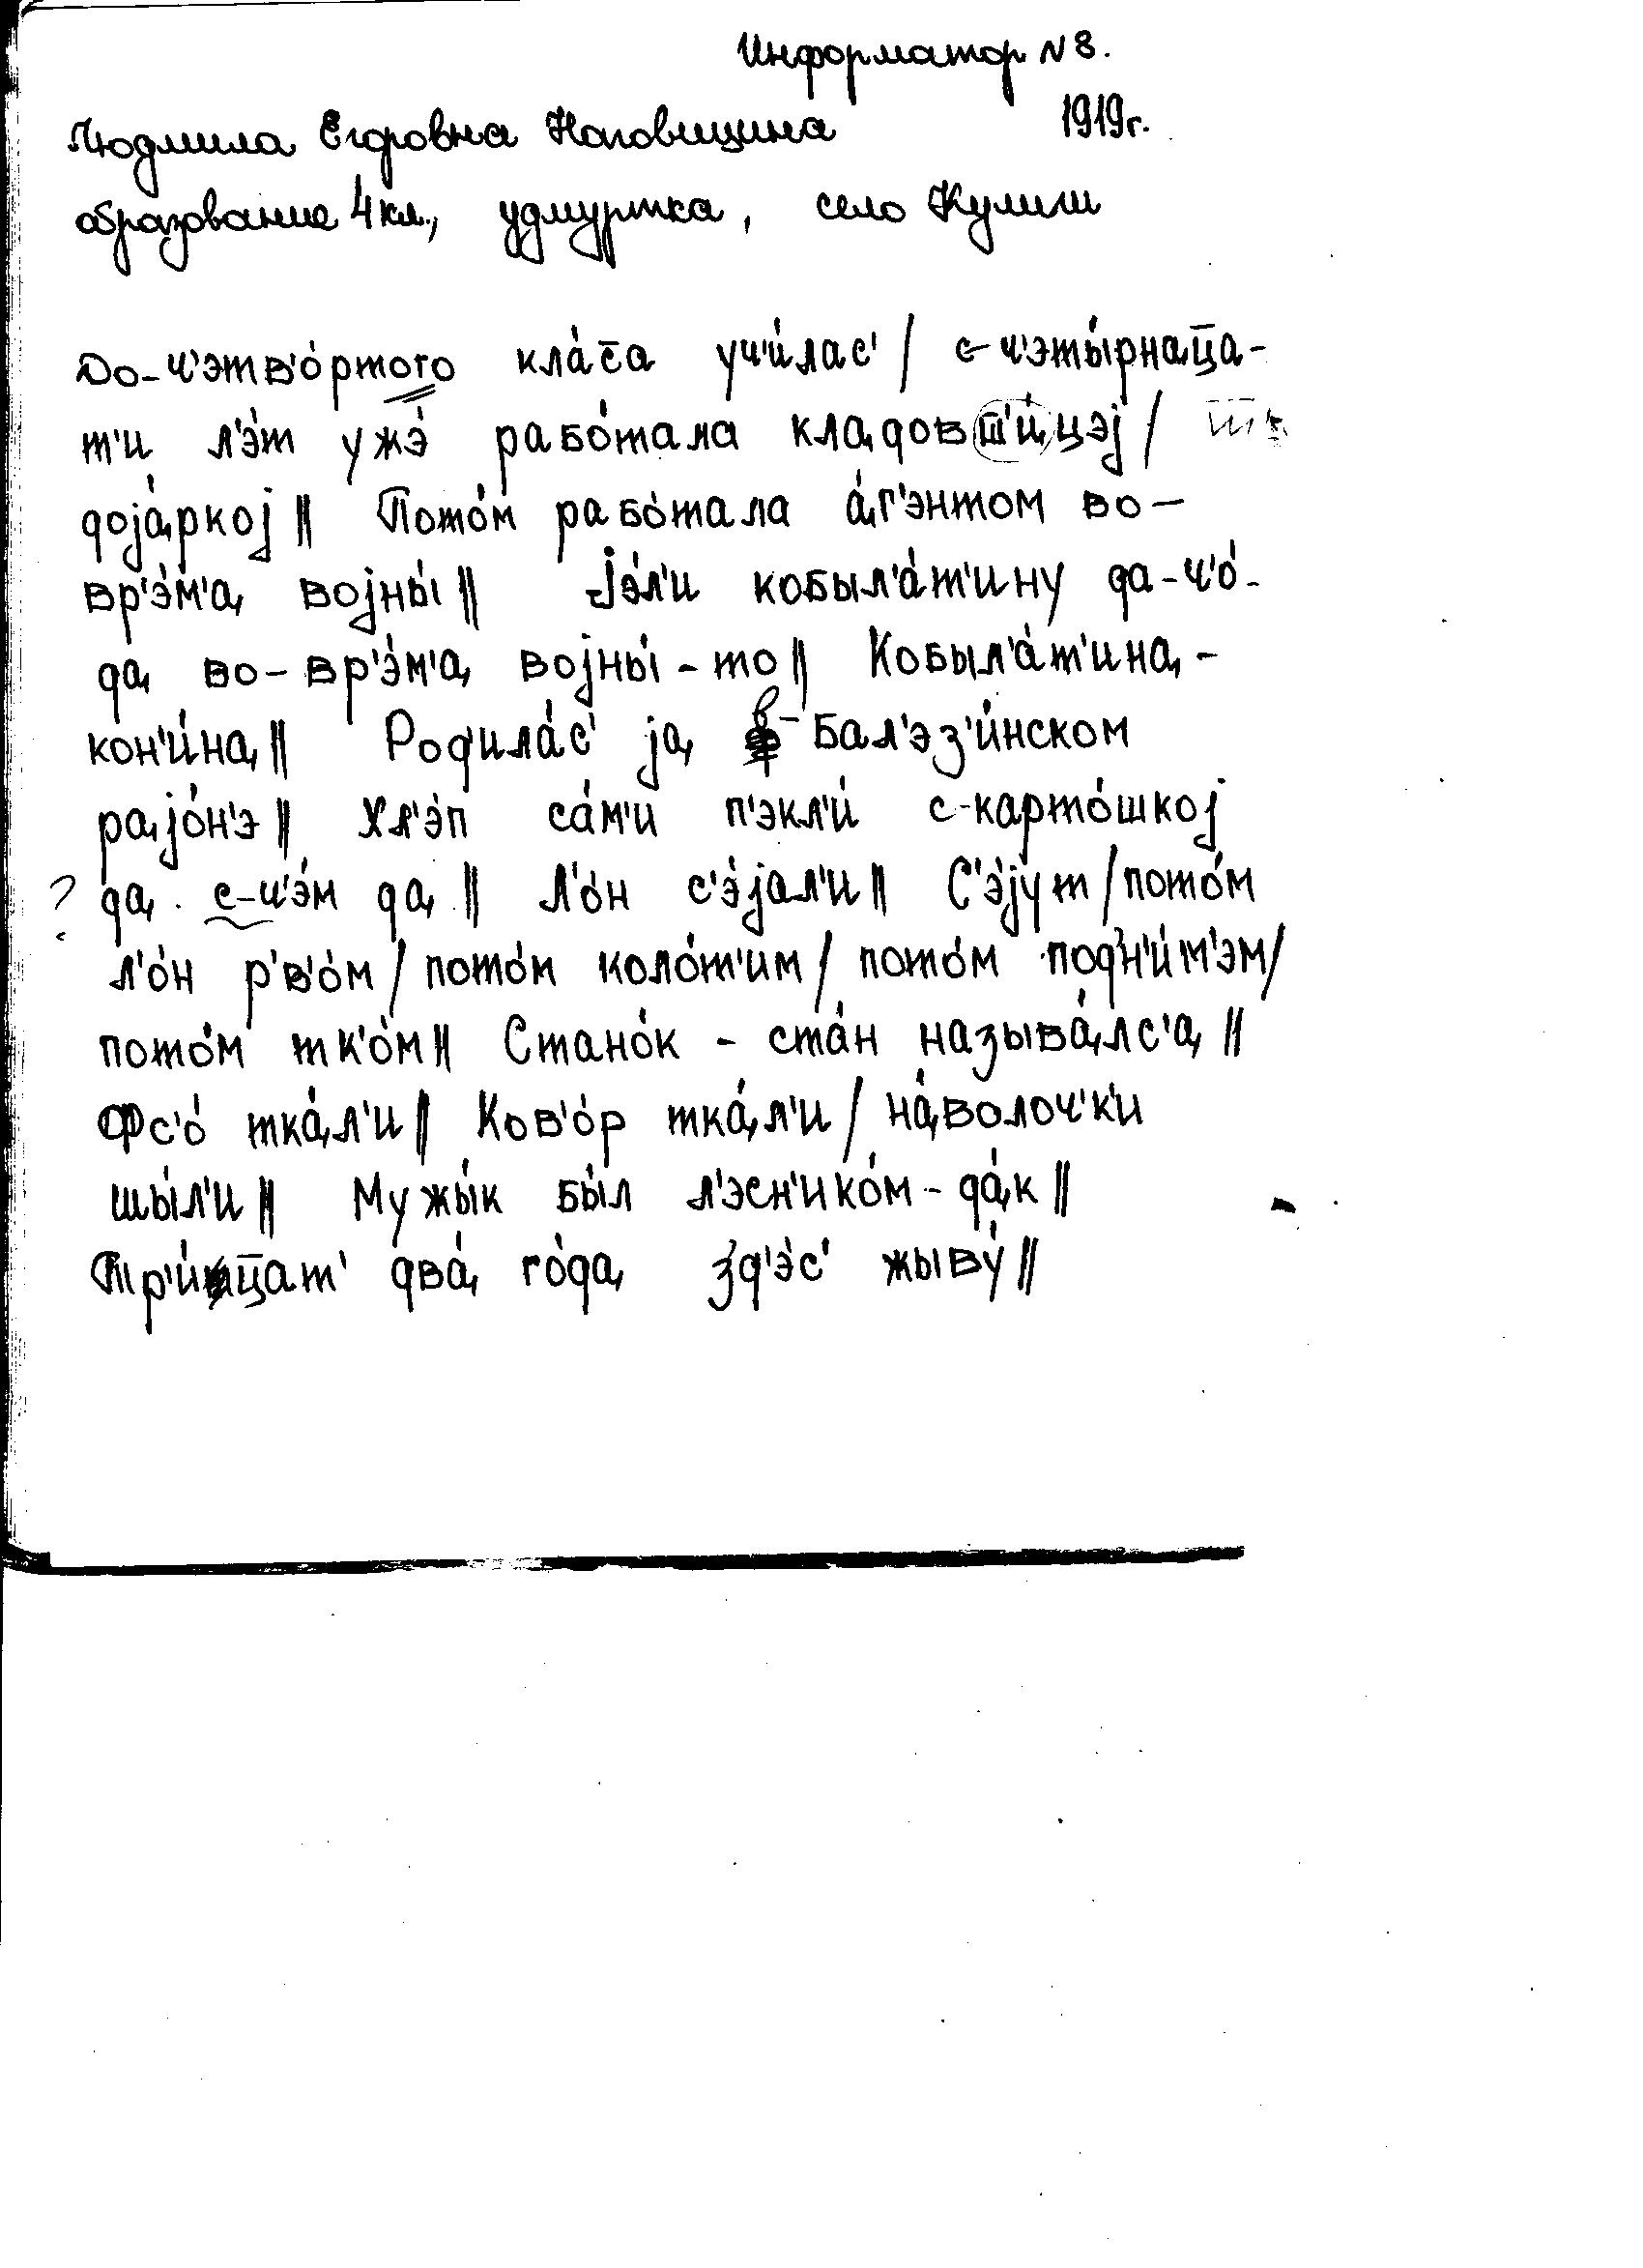 Информатор N 8.
Людмила Егоровна Наговицина 1919г.
образование 4 кл., удмуртка, село Кулиги
До-ч'этв'о́ртого кла́с̄а уч'и́лас' / с-ч'эты́рнац̄а-
т'и л'э́т ужэ́ рабо́тала кладовш̄'и́цэј /
доја́ркој || Пото́м рабо́тала а́г'энтом во-
вр'э́м'а војны́ || Јэ́л'и кобыл'а́т'ину да-ч'о́-
да во-вр'э́м'а војны́-то || Кобыл'а́т'ина -
кон'и́на || Род'ила́с' ја в-Бал'эз'и́нском
рајо́н'э || Хл'э́п са́м'и п'экл'и́ с-карто́шкој
? да с-ч'э́м да || Л'о́н с'э́јал'и || С'э́јут / пото́м
л'о́н р'в'о́м / пото́м коло́т'им / пото́м подн'и́м'эм /
пото́м тк'о́м || Стано́к - ста́н называ́лс'а ||
Фс'о́ тка́л'и || Ков'о́р тка́л'и / на́волоч'к'и
шы́л'и || Мужы́к бы́л л'эсн'ико́м-да́к ||
Тр'и́ц̄ат' два́ го́да зд'э́с' жыву́ ||